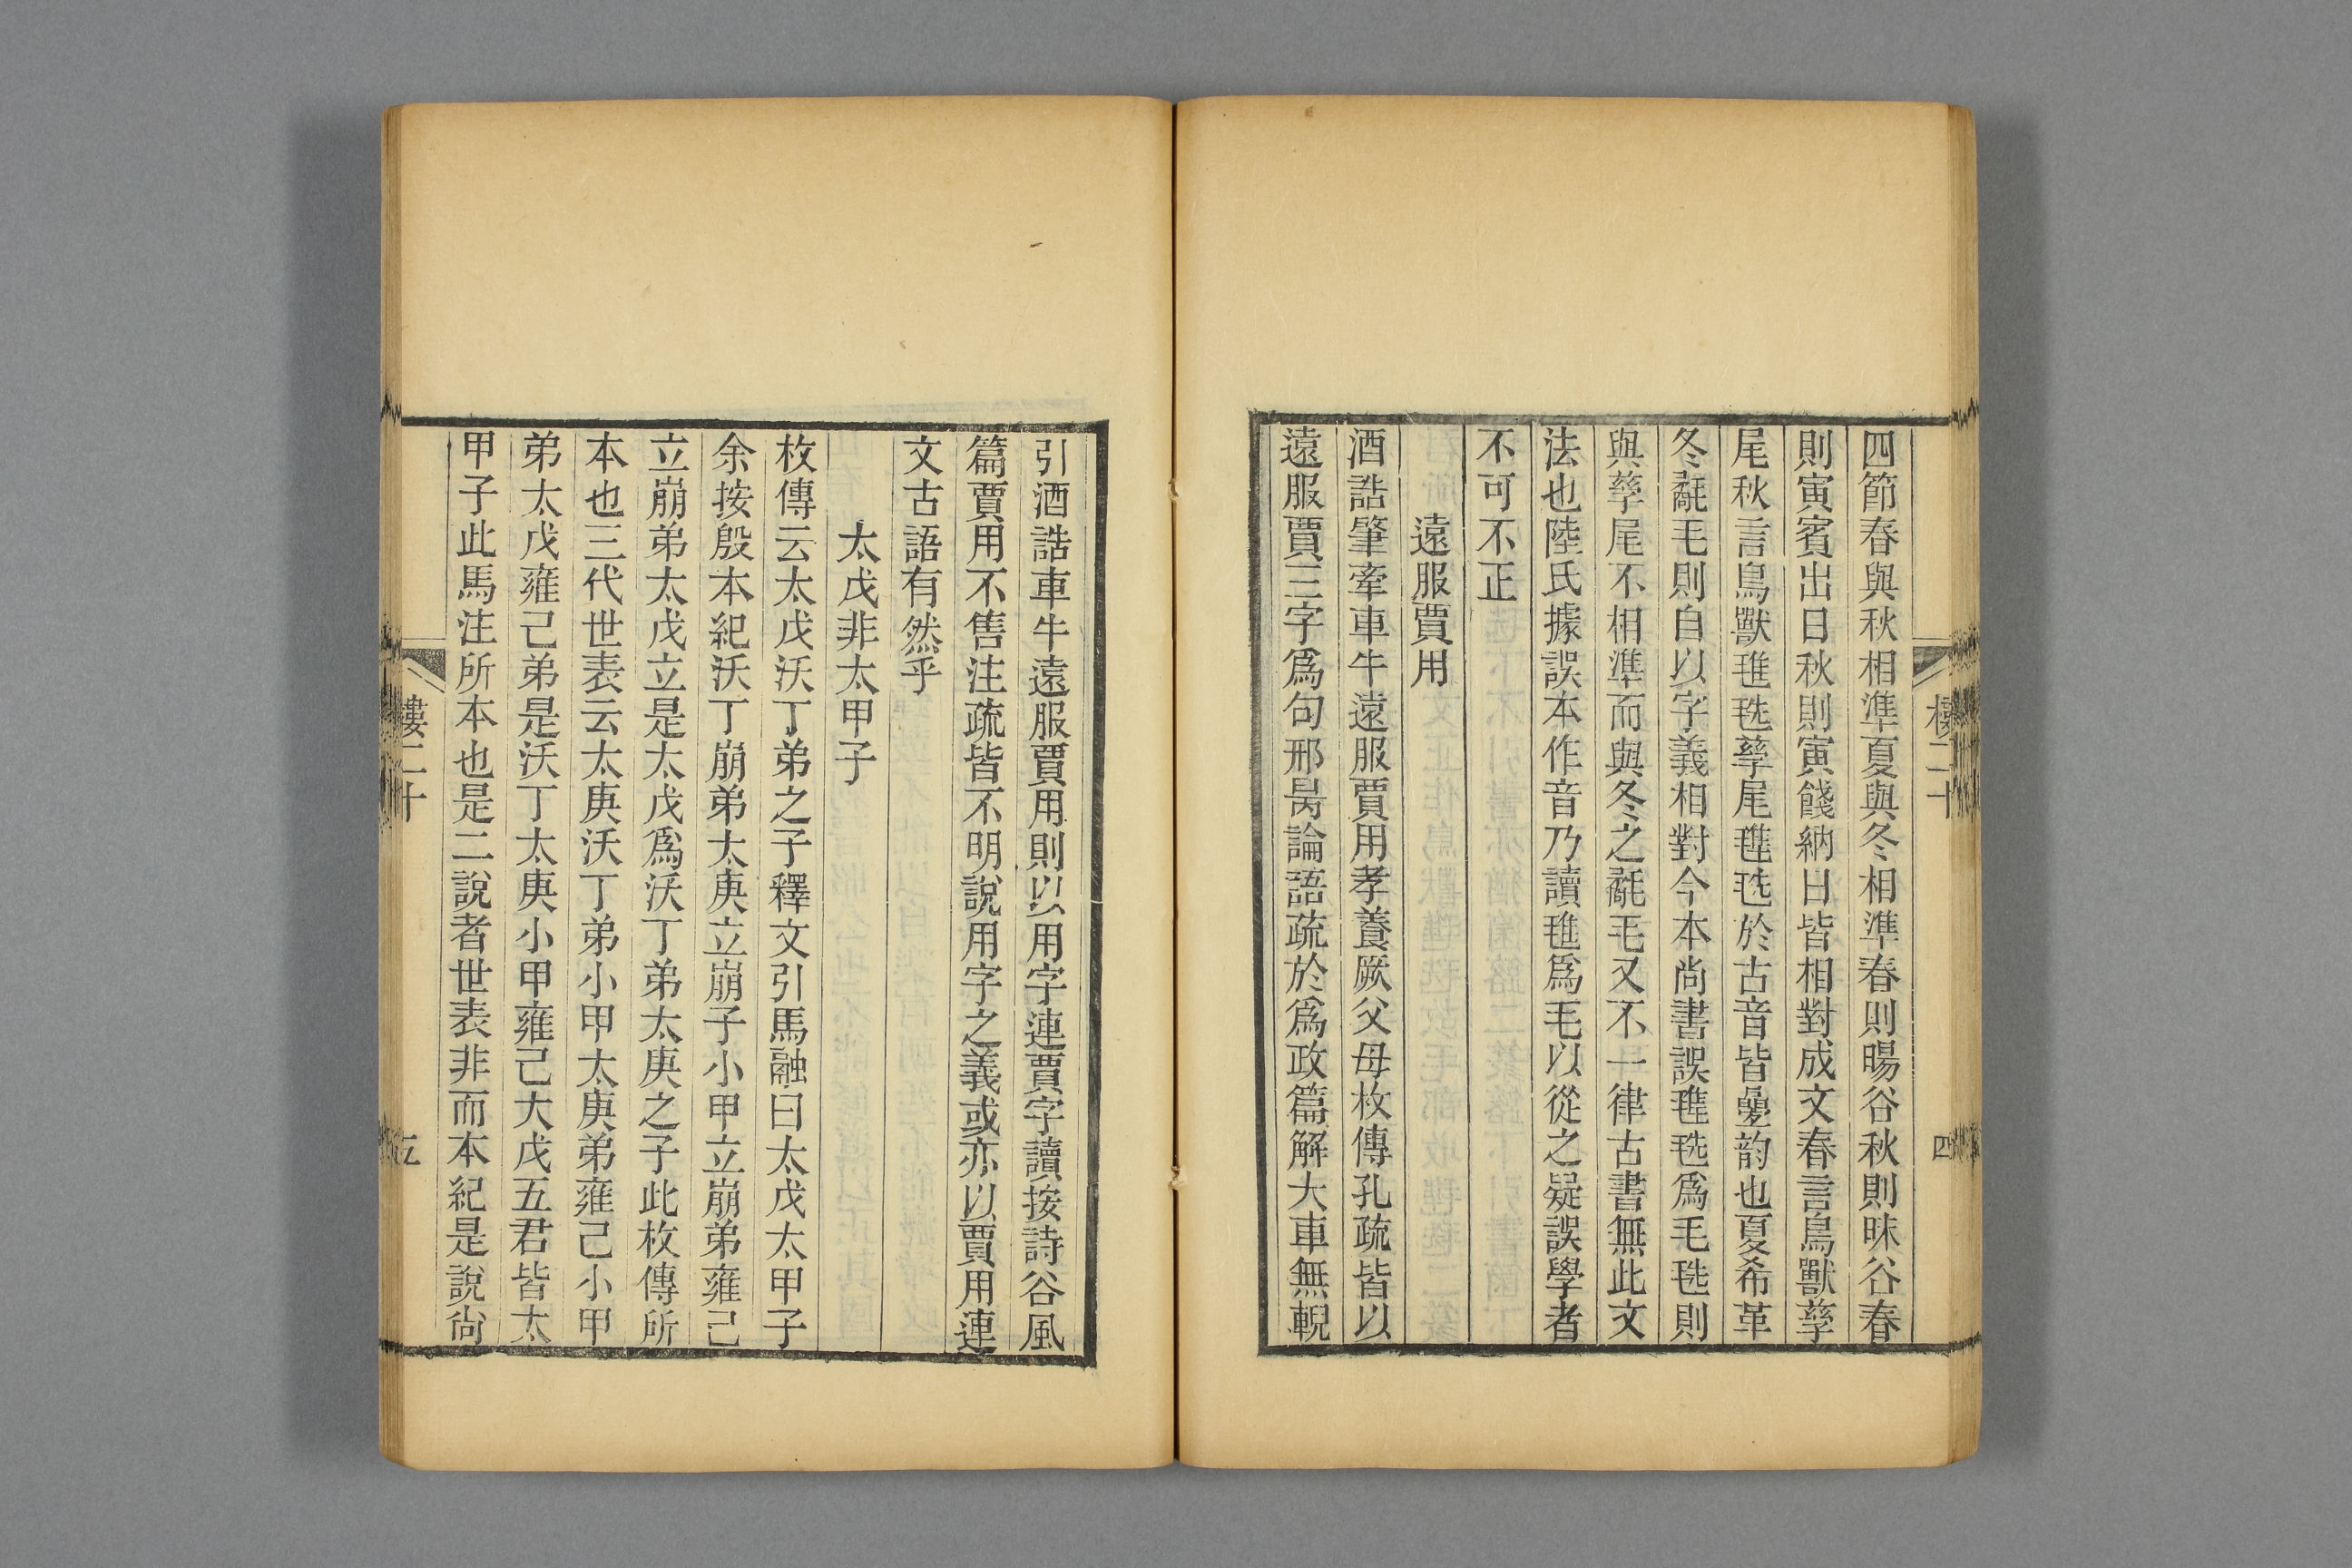 四節春與秋相準夏與冬相準春則暘谷秋則昧谷春
則寅賓出日秋則寅餞納日皆相對成文春言鳥獸孳
尾秋言鳥獸毨孳尾毨於古音皆疊韵也夏希革
冬氄毛則自以字義相對今本尚書誤毨爲毛毨則
與孳尾不相準而與冬之氄毛又不一律古書無此文
法也陸氏據誤本作音乃讀爲毛以從之疑誤學者
不可不正
遠服賈用
酒誥肇牽車牛遠服賈用孝養厥父母枚傳孔疏皆以
遠服賈三字爲句邢昺論語疏於爲政篇解大車無輗
樓二十
四
引酒誥車牛遠服賈用則以用字連賈字讀按詩谷風
篇賈用不售注疏皆不明說用字之義或亦以賈用連
文古語有然乎
太戊非太甲子
枚傳云太戊沃丁弟之子釋文引馬融曰太戊太甲子
余按殷本紀沃丁崩弟太庚立崩子小甲立崩弟雍己
立崩弟太戊立是太戊爲沃丁弟太庚之子此枚傳所
本也三代世表云太庚沃丁弟小甲太庚弟雍己小甲
弟太戊雍己弟是沃丁太庚小甲雍己大戊五君皆太
甲子此馬注所本也是二說者世表非而本紀是說尙
樓二十
五